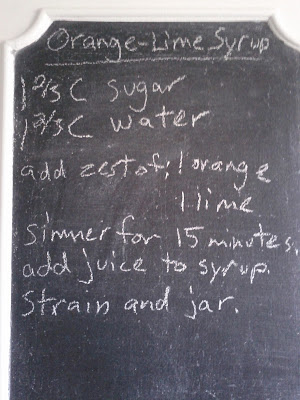 Orange-Lime Syrup
1 2/3 C sugar
1 2/3 C water
add zest of: 1 orange
1 lime
Simmer for 15 minutes.
add juice to syrup.
Strain and jar.